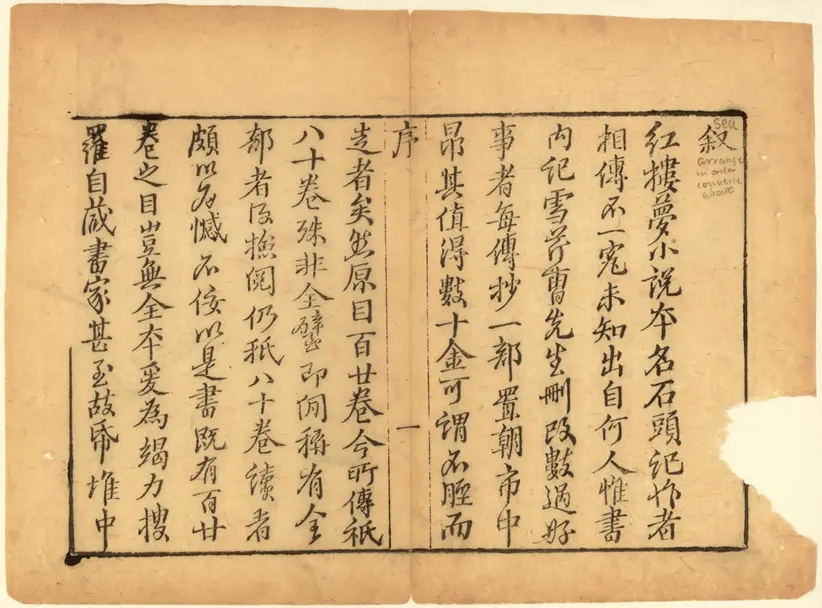 叙
seu
arrange
in order
converse
about
紅樓夢小説本名石頭記作者
相傳不一究未知出自何人惟書
内記雪芹曹先生刪改數過好
事者每傳抄一部置朝市中
昂其值得數十金可謂不脛而
序 一
走者矣然原目百廿卷今所傳祇
八十卷殊非全璧即間稱有全
部者及撿閱仍祇八十卷讀者
頗以為憾不佞以是書既有百廿
卷之目豈無全本爰為竭力搜
羅自藏書家甚至故帋堆中